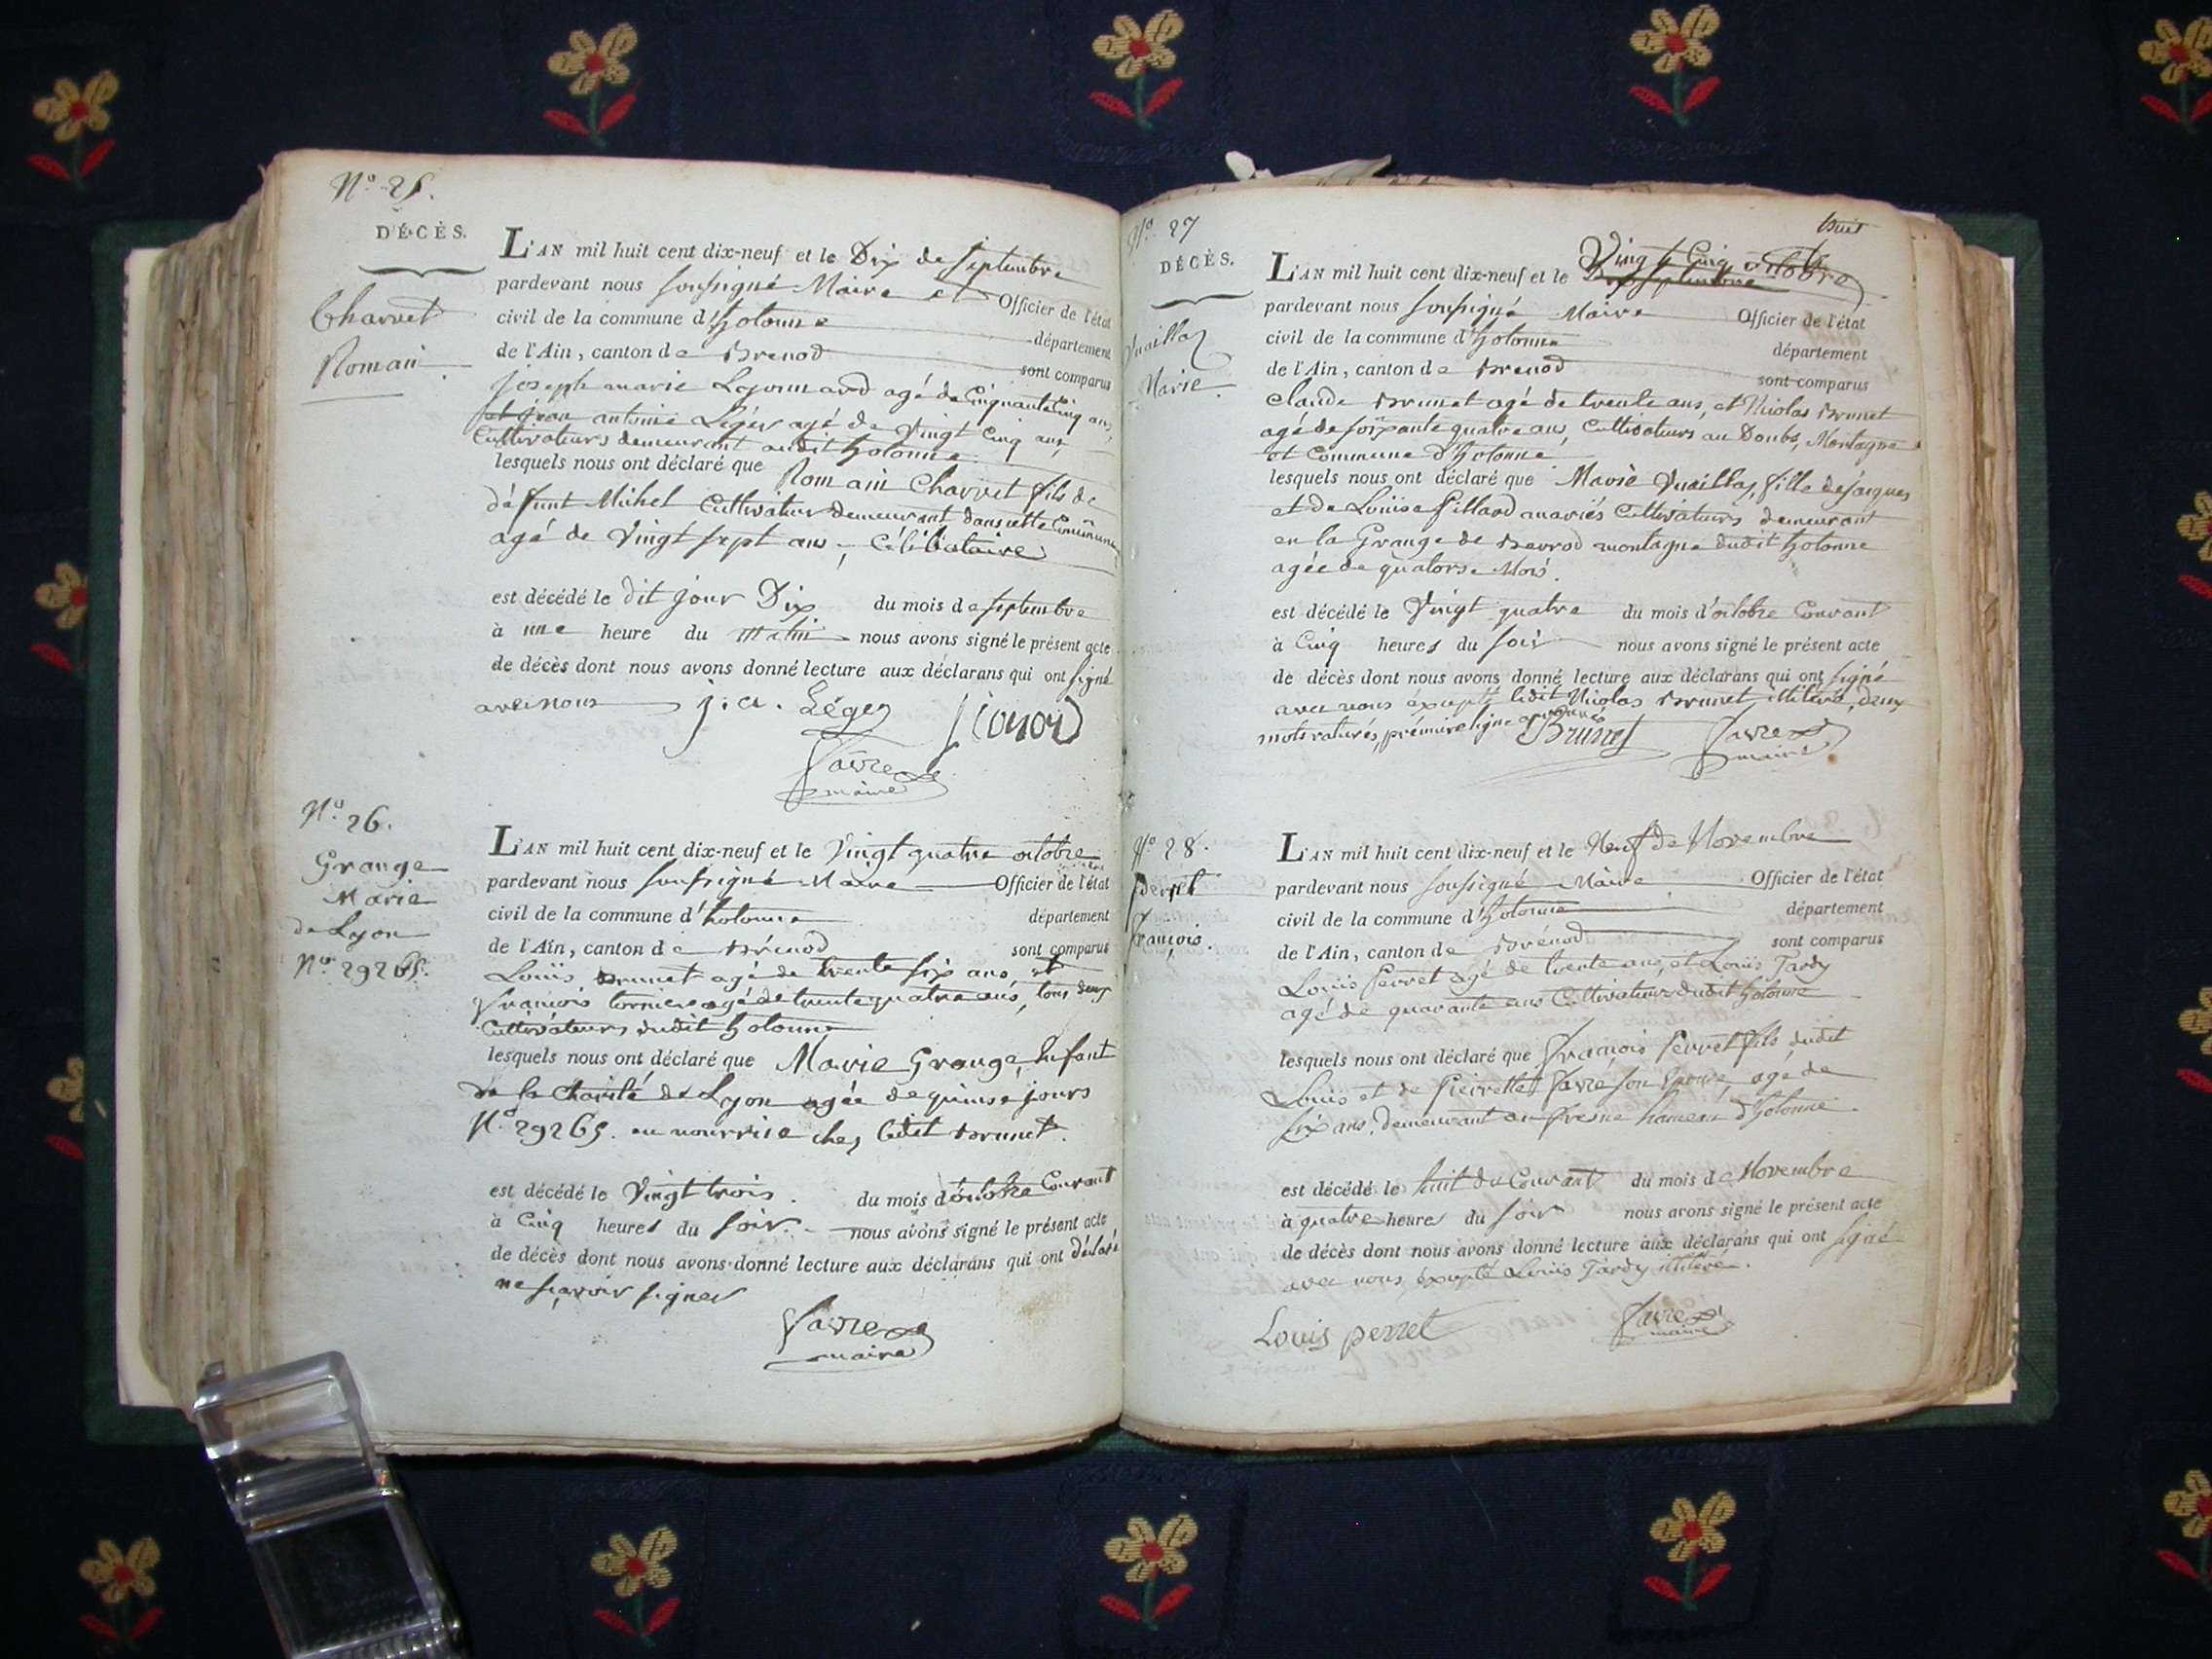 N.º 25.
DÉCÈS.
Charvet
Romain
L'AN mil huit cent dix-neuf et le Dix de septembre
pardevant nous soussigné Maire et Officier de l'état
civil de la commune d'hotonne département
de l'Ain, canton de Brenod sont comparus
joseph marie agé de Cinquante Cinq ans,
et jean antoine Léger agé de Vingt Cinq ans,
Cultivateurs demeurant audit hotonne
lesquels nous ont déclaré que Romain Charvet fils de
défunt Michel Cultivateur demeurant dans cette Commune
agé de Vingt sept ans, Célibataire
est décédé le dit jour Dix du mois de septembre
à une heure du matin nous avons signé le présent acte
de décès dont nous avons donné lecture aux déclarans qui ont signé
avec nous j. a. Léger
Favre
maire
N.º 26.
Grange
Marie
de Lyon
N.º 29265.
L'AN mil huit cent dix-neuf et le Vingt quatre octobre
pardevant nous soussigné Maire Officier de l'état
civil de la commune d'hotonne département
de l'Ain, canton de Brénod sont comparus
Louis Brunet agé de trente six ans, et
François tornier agé de trente quatre ans, tous deux
Cultivateurs dudit hotonne
lesquels nous ont déclaré que Marie Grange, Enfant
de la Charité de Lyon agée de quinse jours
N.º 29265. en nourrice chez ledit Brunet.
est décédé le Vingt trois. du mois d'octobre Courant
à Cinq heures du soir. nous avons signé le présent acte
de décès dont nous avons donné lecture aux déclarans qui ont déclaré
ne sçavoir signer
Favre
maire
huit
N.º 27
DÉCÈS.
Vuaillaz
Marie.
L'AN mil huit cent dix-neuf et le Vingt Cinq octobre
pardevant nous soussigné Maire Officier de l'état
civil de la commune d'hotonne département
de l'Ain, canton de Brenod sont comparus
Claude Brunet agé de trente ans, et Nicolas Brunet
agé de soixante quatre ans, Cultivateurs au Doubs, Montagne
et Commune d'hotonne
lesquels nous ont déclaré que Marie Vuaillaz, fille de jacques
et de Louise Pillard mariés Cultivateurs demeurant
en la Grange de montagne dudit hotonne
agée de quatorse Mois.
est décédé le Vingt quatre du mois d'octobre Courant
à Cinq heures du soir nous avons signé le présent acte
de décès dont nous avons donné lecture aux déclarans qui ont signé
avec nous éxcepté ledit Nicolas Brunet illitéré, deux
mots raturés, prémiere ligne approuvés
Brunet Favre
maire
N.º 28.
Perret
François.
L'AN mil huit cent dix-neuf et le Neuf de Novembre
pardevant nous soussigné Maire Officier de l'état
civil de la commune d'hotonne département
de l'Ain, canton de Brénod sont comparus
Louis Perret agé de trente ans, et Louis Tardy
agé de quarante ans Cultivateurs dudit hotonne
lesquels nous ont déclaré que François Perret fils dudit
Louis et de Pierrette Favre son Epouse, agé de
six ans, demeurant au fresne hameau d'hotonne.
est décédé le huit du Courant du mois de Novembre
à quatre heures du soir nous avons signé le présent acte
de décès dont nous avons donné lecture aux déclarans qui ont signé
avec nous, éxcepté Louis Tardy illitéré.
Louis perret Favre
maire